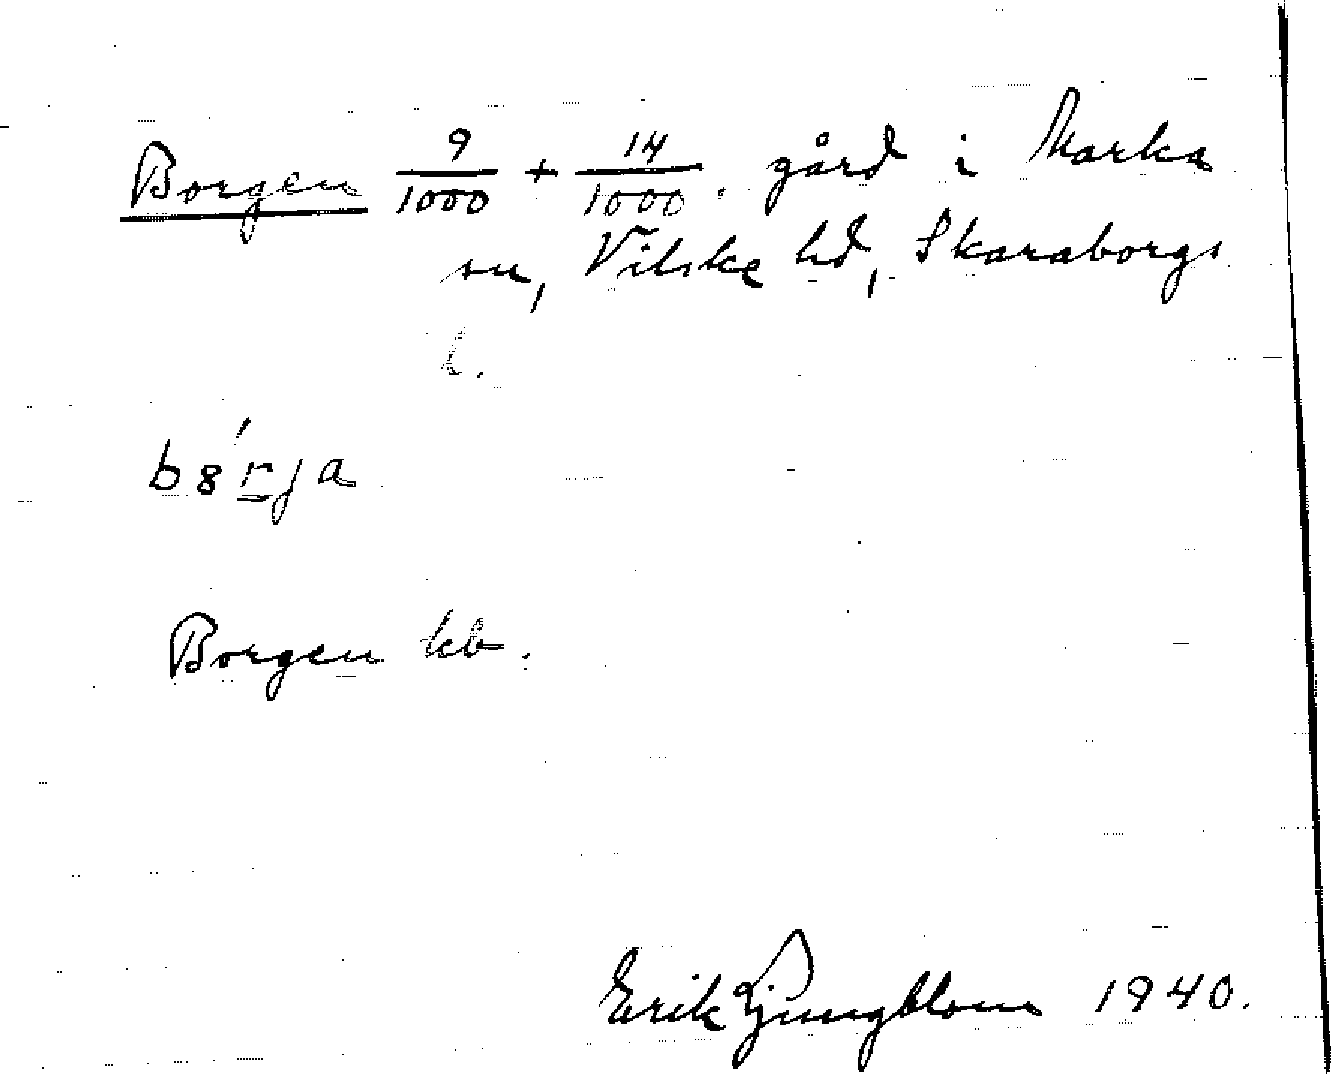 Borgen 9/1000 + 14/1000. gård i Marka
sn, Vilske hd, Skaraborgs
l.
b8́rja
Borgen kb.
Erik Ljungblom 1940.